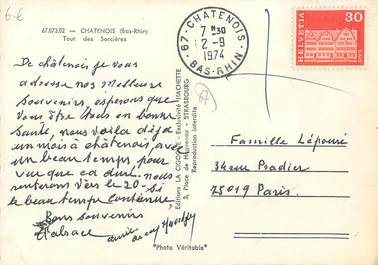 6€
67.073.02 - CHATENOIS (Bas-Rhin)
Tour des Sorcières
67 - CHATENOIS
7 H30
2-9
1974
BAS-RHIN
HELVETIA
30
De châtenois je vous
adresse nos meilleurs
souvenirs, esperons que
vous être tous en bonne
Santé, nous voilà déjà
un mois à châtenois, avec
un beau temps, pour
vue que ca dure. nous
renterons vers le 20 - si
le beau temps continue.
Bons souvenirs
d'alsace
Editions LA CIGOGNE - Exclusivité HACHETTE
3, Place de Haguenau - STRASBOURG
Reproduction interdite
Famille Lépouré
34 rue Pradier
75019 Paris.
"Photo Véritable"